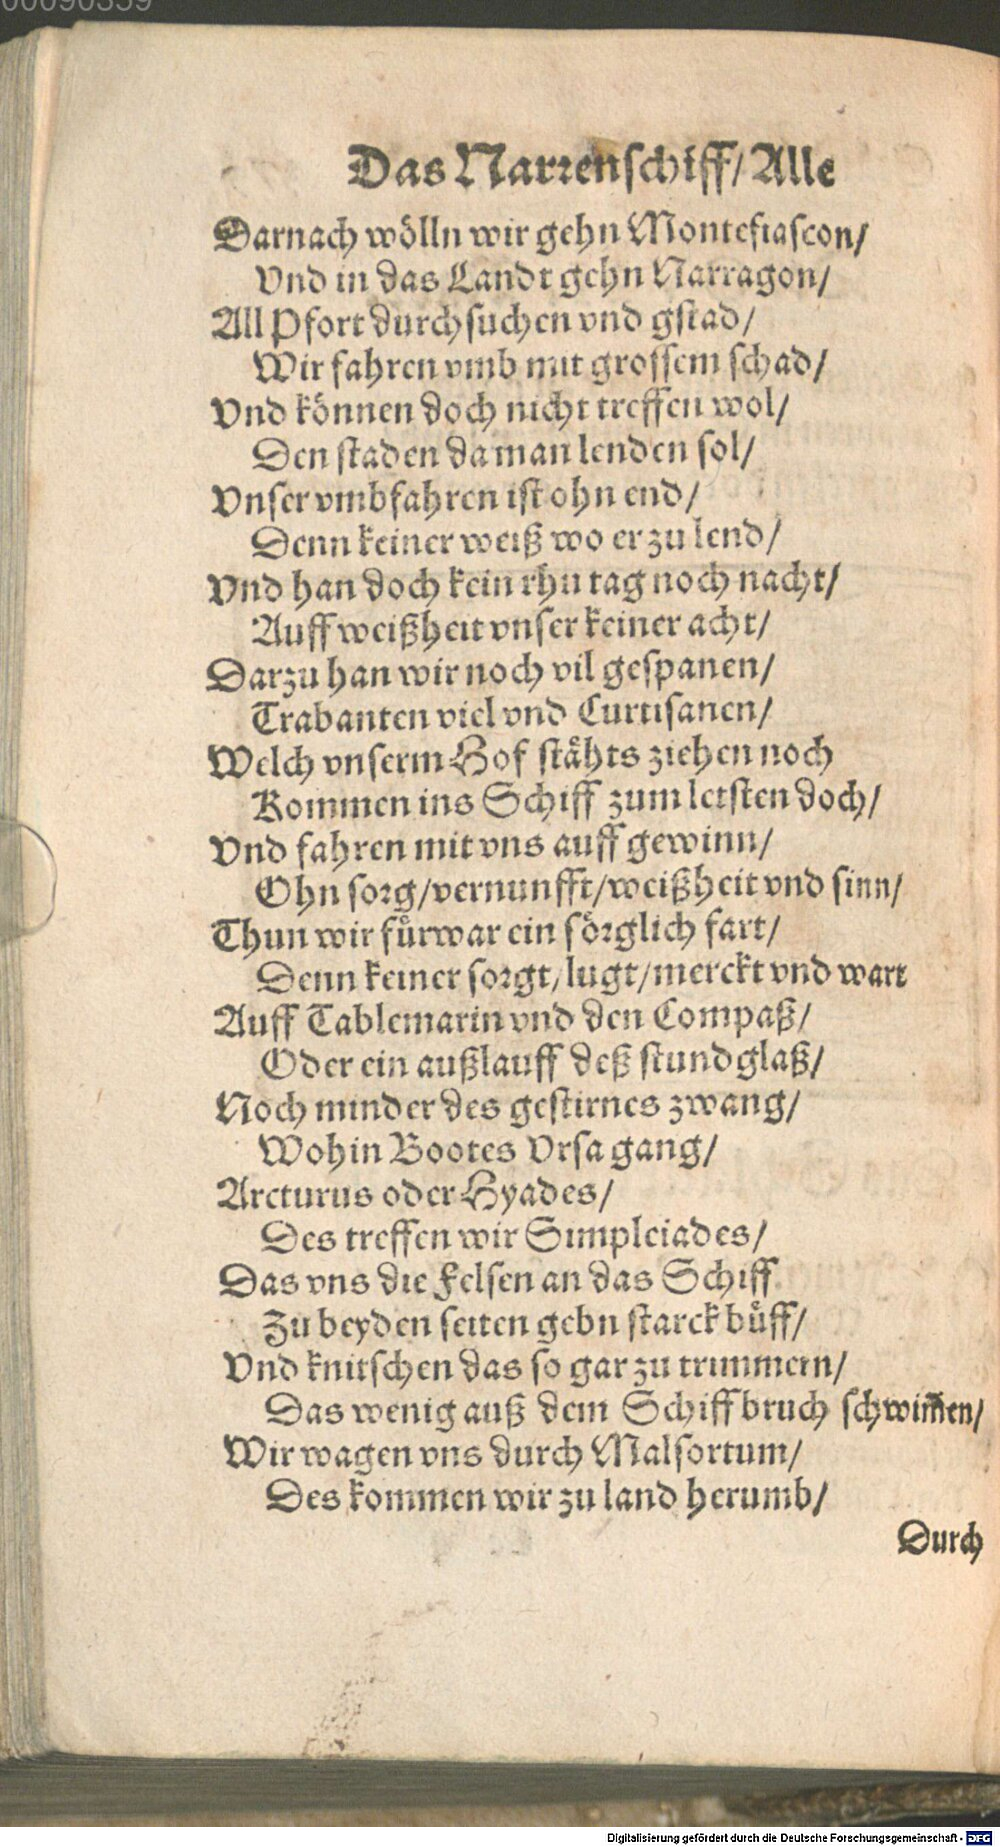 00090359
Das Narrenschiff/Alle
Darnach wölln wir gehn Montefiascon/
Vnd in das Landt gehn Narragon/
All Pfort durchsuchen vnd gstad/
Wir fahren vmb mit grossem schad/
Vnd können doch nicht treffen wol/
Den staden da man lenden sol/
Vnser vmbfahren ist ohn end/
Denn keiner weiß wo er zu lend/
Vnd han doch kein rhu tag noch nacht/
Auff weißheit vnser keiner acht/
Darzu han wir noch vil gespanen/
Trabanten viel vnd Curtisanen/
Welch vnserm Hof stähts ziehen noch
Kommen ins Schiff zum letsten doch/
Vnd fahren mit vns auff gewinn/
Ohn sorg/vernunfft/weißheit vnd sinn/
Thun wir fürwar ein sörglich fart/
Denn keiner sorgt/lugt/merckt vnd wart
Auff Tablemarin vnd den Compaß/
Oder ein außlauff deß stundglaß/
Noch minder des gestirnes zwang/
Wohin Bootes Vrsa gang/
Arcturus oder Hyades/
Des treffen wir Simpleiades/
Das vns die Felsen an das Schiff
Zu beyden seiten gebn starck büff/
Vnd knitschen das so gar zu trimmern/
Das wenig auß dem Schiffbruch schwim̃en/
Wir wagen vns durch Malfortum/
Des kommen wir zu land herumb/
Durch
Digitalisierung gefördert durch die Deutsche Forschungsgemeinschaft - DFG